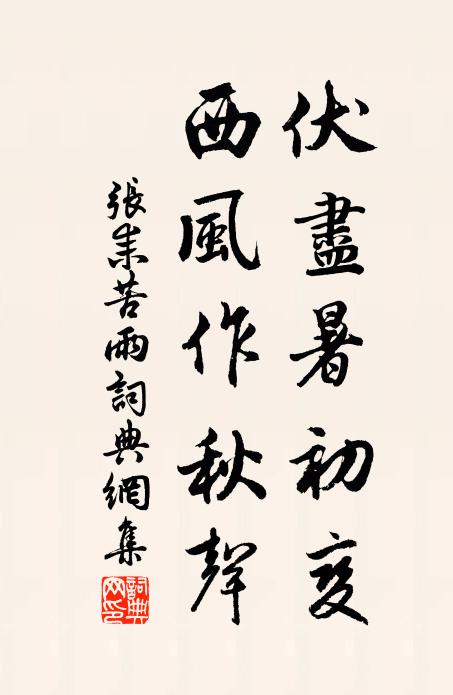 伏盡暑初變
西風作秋聲
張耒苦雨詞典網集
詞典網印